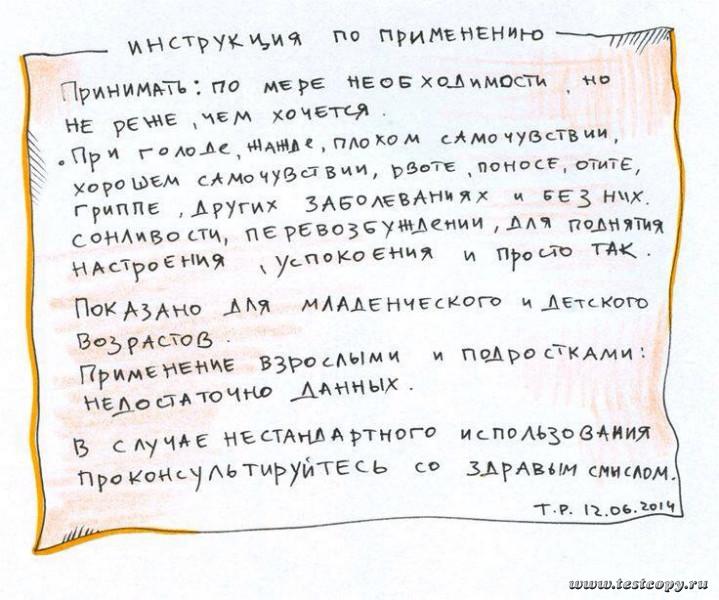 ИНСТРУКЦИЯ ПО ПРИМЕНЕНИЮ
ПРИНИМАТЬ: ПО МЕРЕ НЕОБХОДИМОСТИ, НО
НЕ РЕЖЕ, ЧЕМ ХОЧЕТСЯ.
• ПРИ ГОЛОДЕ, ЖАЖДЕ, ПЛОХОМ САМОЧУВСТВИИ,
ХОРОШЕМ САМОЧУВСТВИИ, РВОТЕ, ПОНОСЕ, ОТИТЕ,
ГРИППЕ, ДРУГИХ ЗАБОЛЕВАНИЯХ И БЕЗ НИХ.
СОНЛИВОСТИ, ПЕРЕВОЗБУЖДЕНИИ, ДЛЯ ПОДНЯТИЯ
НАСТРОЕНИЯ, УСПОКОЕНИЯ И ПРОСТО ТАК.
ПОКАЗАНО ДЛЯ МЛАДЕНЧЕСКОГО И ДЕТСКОГО
ВОЗРАСТОВ.
ПРИМЕНЕНИЕ ВЗРОСЛЫМИ И ПОДРОСТКАМИ:
НЕДОСТАТОЧНО ДАННЫХ.
В СЛУЧАЕ НЕСТАНДАРТНОГО ИСПОЛЬЗОВАНИЯ
ПРОКОНСУЛЬТИРУЙТЕСЬ СО ЗДРАВЫМ СМЫСЛОМ.
Т.Р. 12.06.2014
www.testcopy.ru